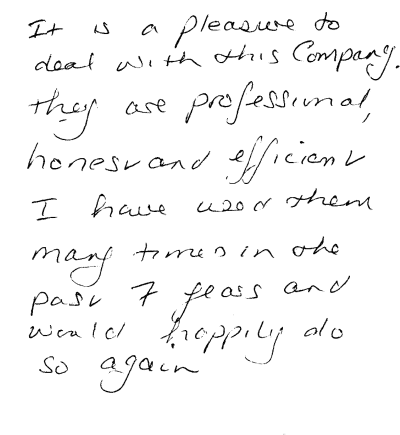 It is a pleasure to
deal with this Company.
they are professional,
honest and efficient
I have used them
many times in the
past 7 years and
would happily do
so again